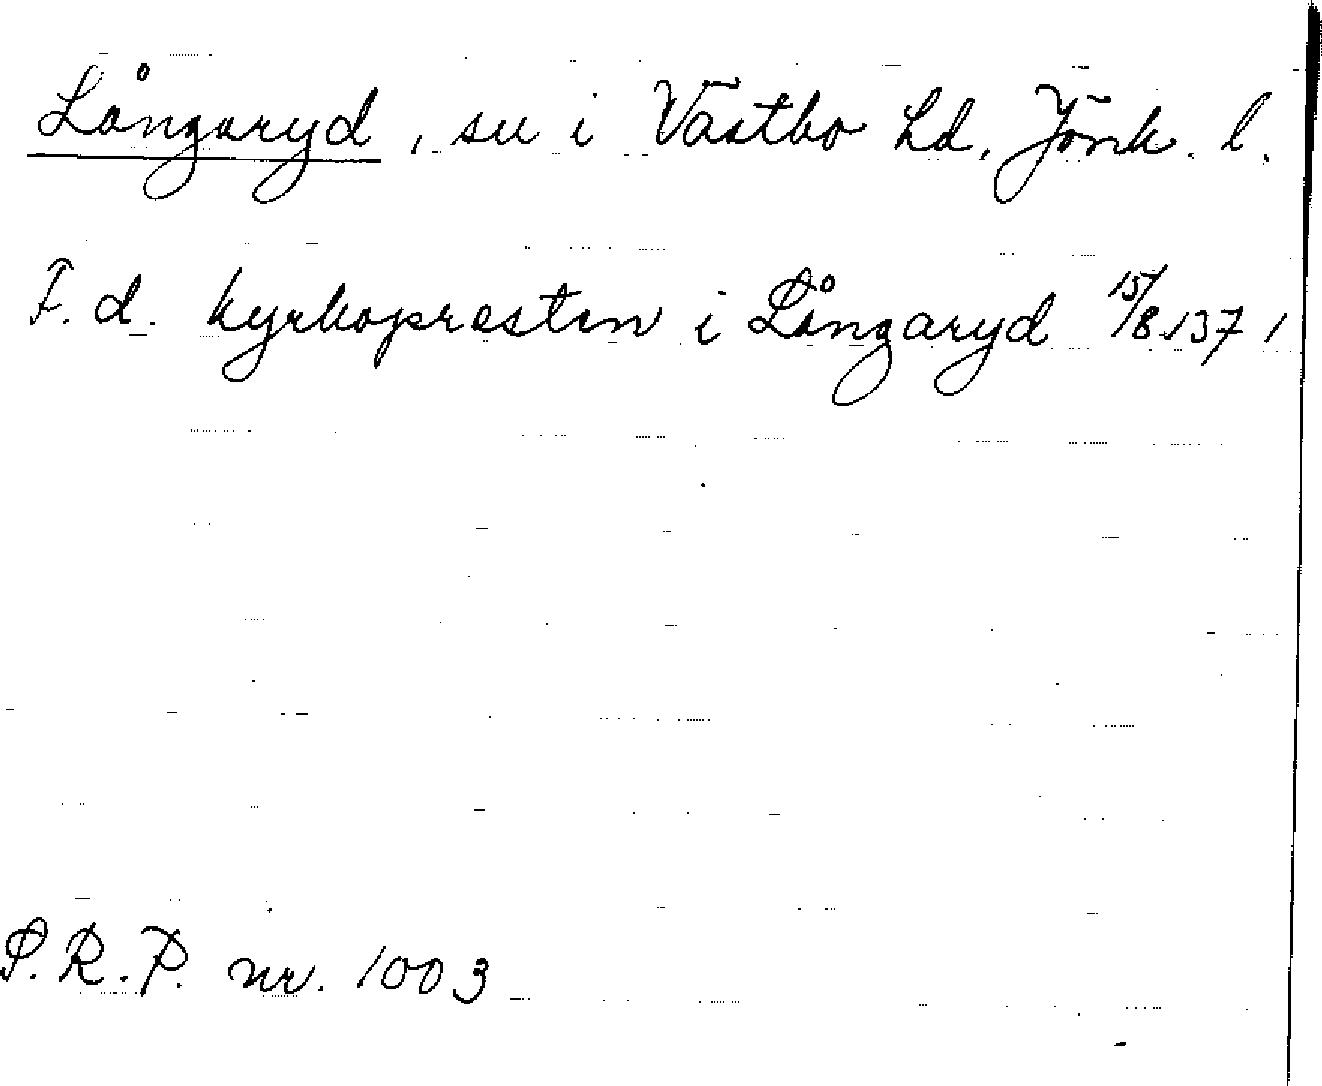 Långaryd, sn i Västbo hd, Jönk. l.
F. d. kyrkopresten i Långaryd 15/8 1371
S.R.P. nr. 1003